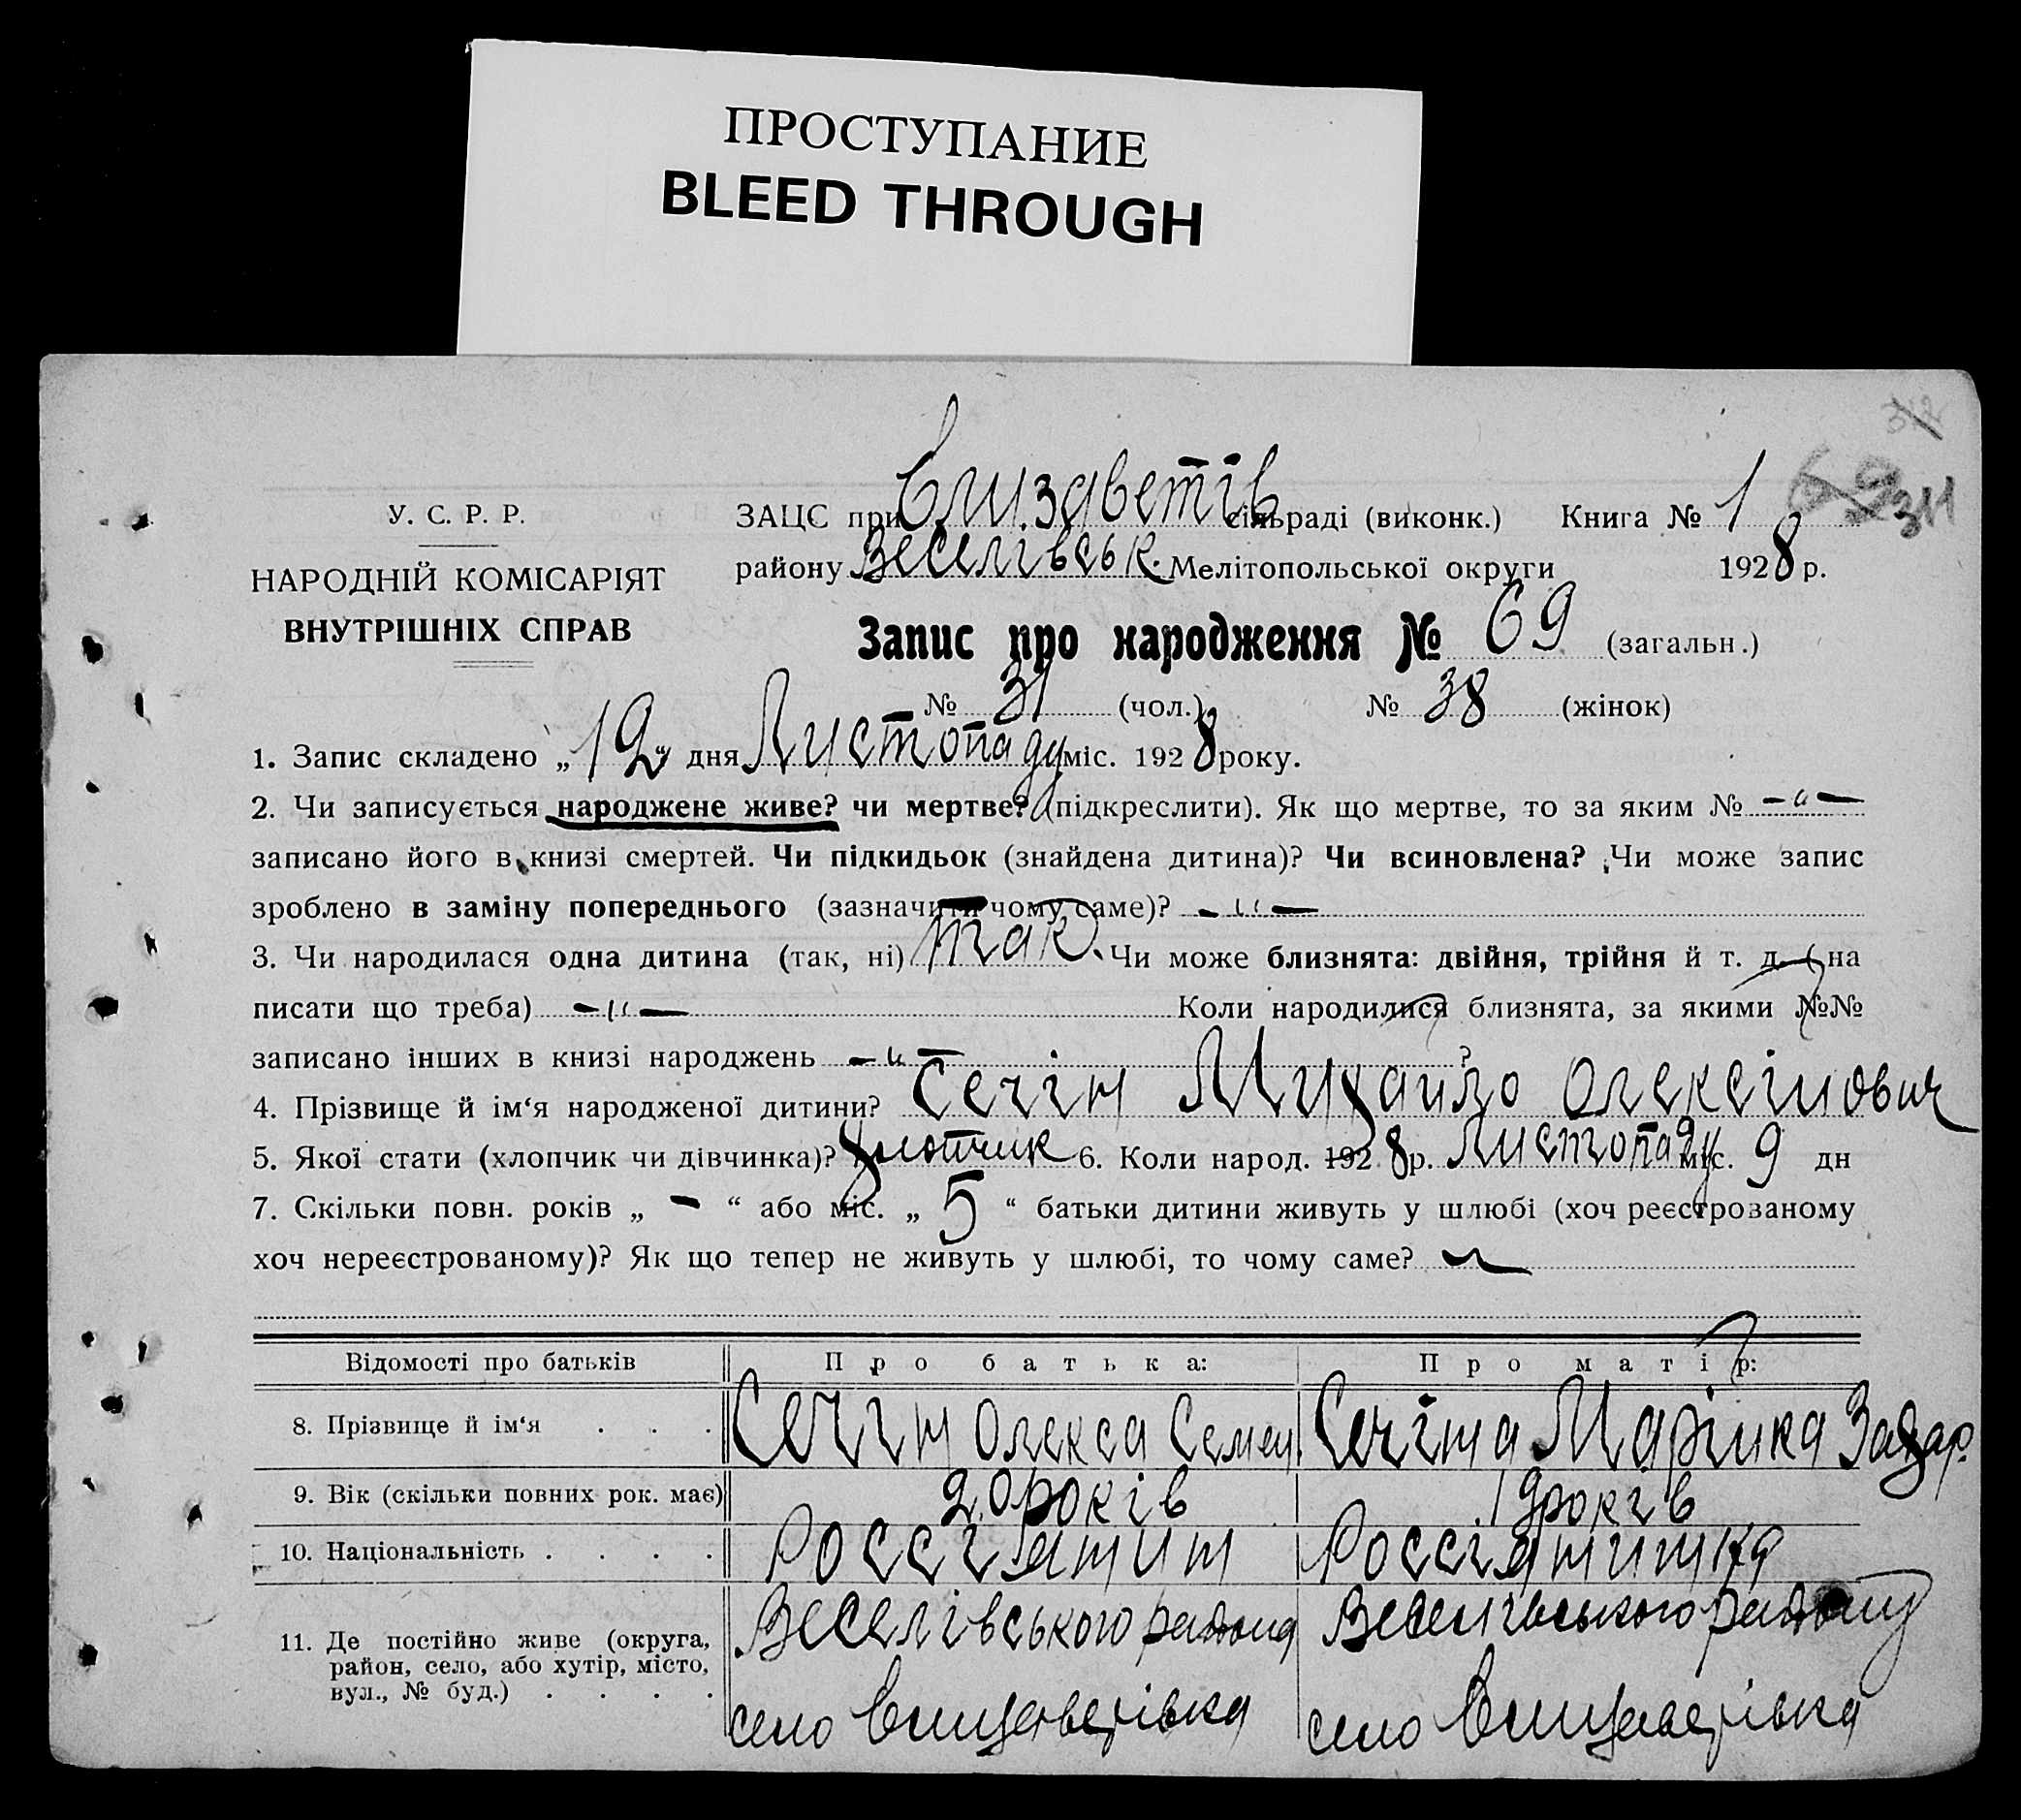 ПРОСТУПАНИЕ
BLEED THROUGH
312
69 311
У. С. Р. Р.
НАРОДНІЙ КОМІСАРІЯТ
ВНУТРІШНІХ СПРАВ
ЗАЦС при Єлизаветів сільраді (виконк.) Книга № 1
району Веселівськ. Мелітопольської округи 1928 р.
Запис про народження № 69 (загальн.)
№ 31 (чол.) № 38 (жінок)
1. Запис складено „12“ дня Листопаду міс. 1928 року.
2. Чи записується народжене живе? чи мертве? (підкреслити). Як що мертве, то за яким № -"-
записано його в книзі смертей. Чи підкидьок (знайдена дитина)? Чи всиновлена? Чи може запис
зроблено в заміну попереднього (зазначити чому саме)? -"-
3. Чи народилася одна дитина (так, ні) так. Чи може близнята: двійня, трійня й т. д. ( на
писати що треба) -"- Коли народилися близнята, за якими №№
записано інших в книзі народжень -"- ?
4. Прізвище й ім‘я народженої дитини? Сечін Михайло Олексійович
5. Якої стати (хлопчик чи дівчинка)? Хлопчик 6. Коли народ. 1928 р. Листопаду міс. 9 дн
7. Скільки повн. років „ - “ або міс. „ 5 “ батьки дитини живуть у шлюбі (хоч реєстрозаному
хоч нереєстрованому)? Як що тепер не живуть у шлюбі, то чому саме?
Відомості про батьків Про батька: Про матір:
8. Прізвище й ім‘я . . . Сечін Олекса Семен. Сечіна Марійка Захар.
9. Вік (скільки повних рок. має) 20 років 19 років
10. Національність . . . . Россіянин Россіянинка
11. Де постійно живе (округа,
район, село, або хутір, місто,
вул., № буд.) . . . .
Веселівського району Веселівського району
село Єлизаветівка село Єлизаветівка